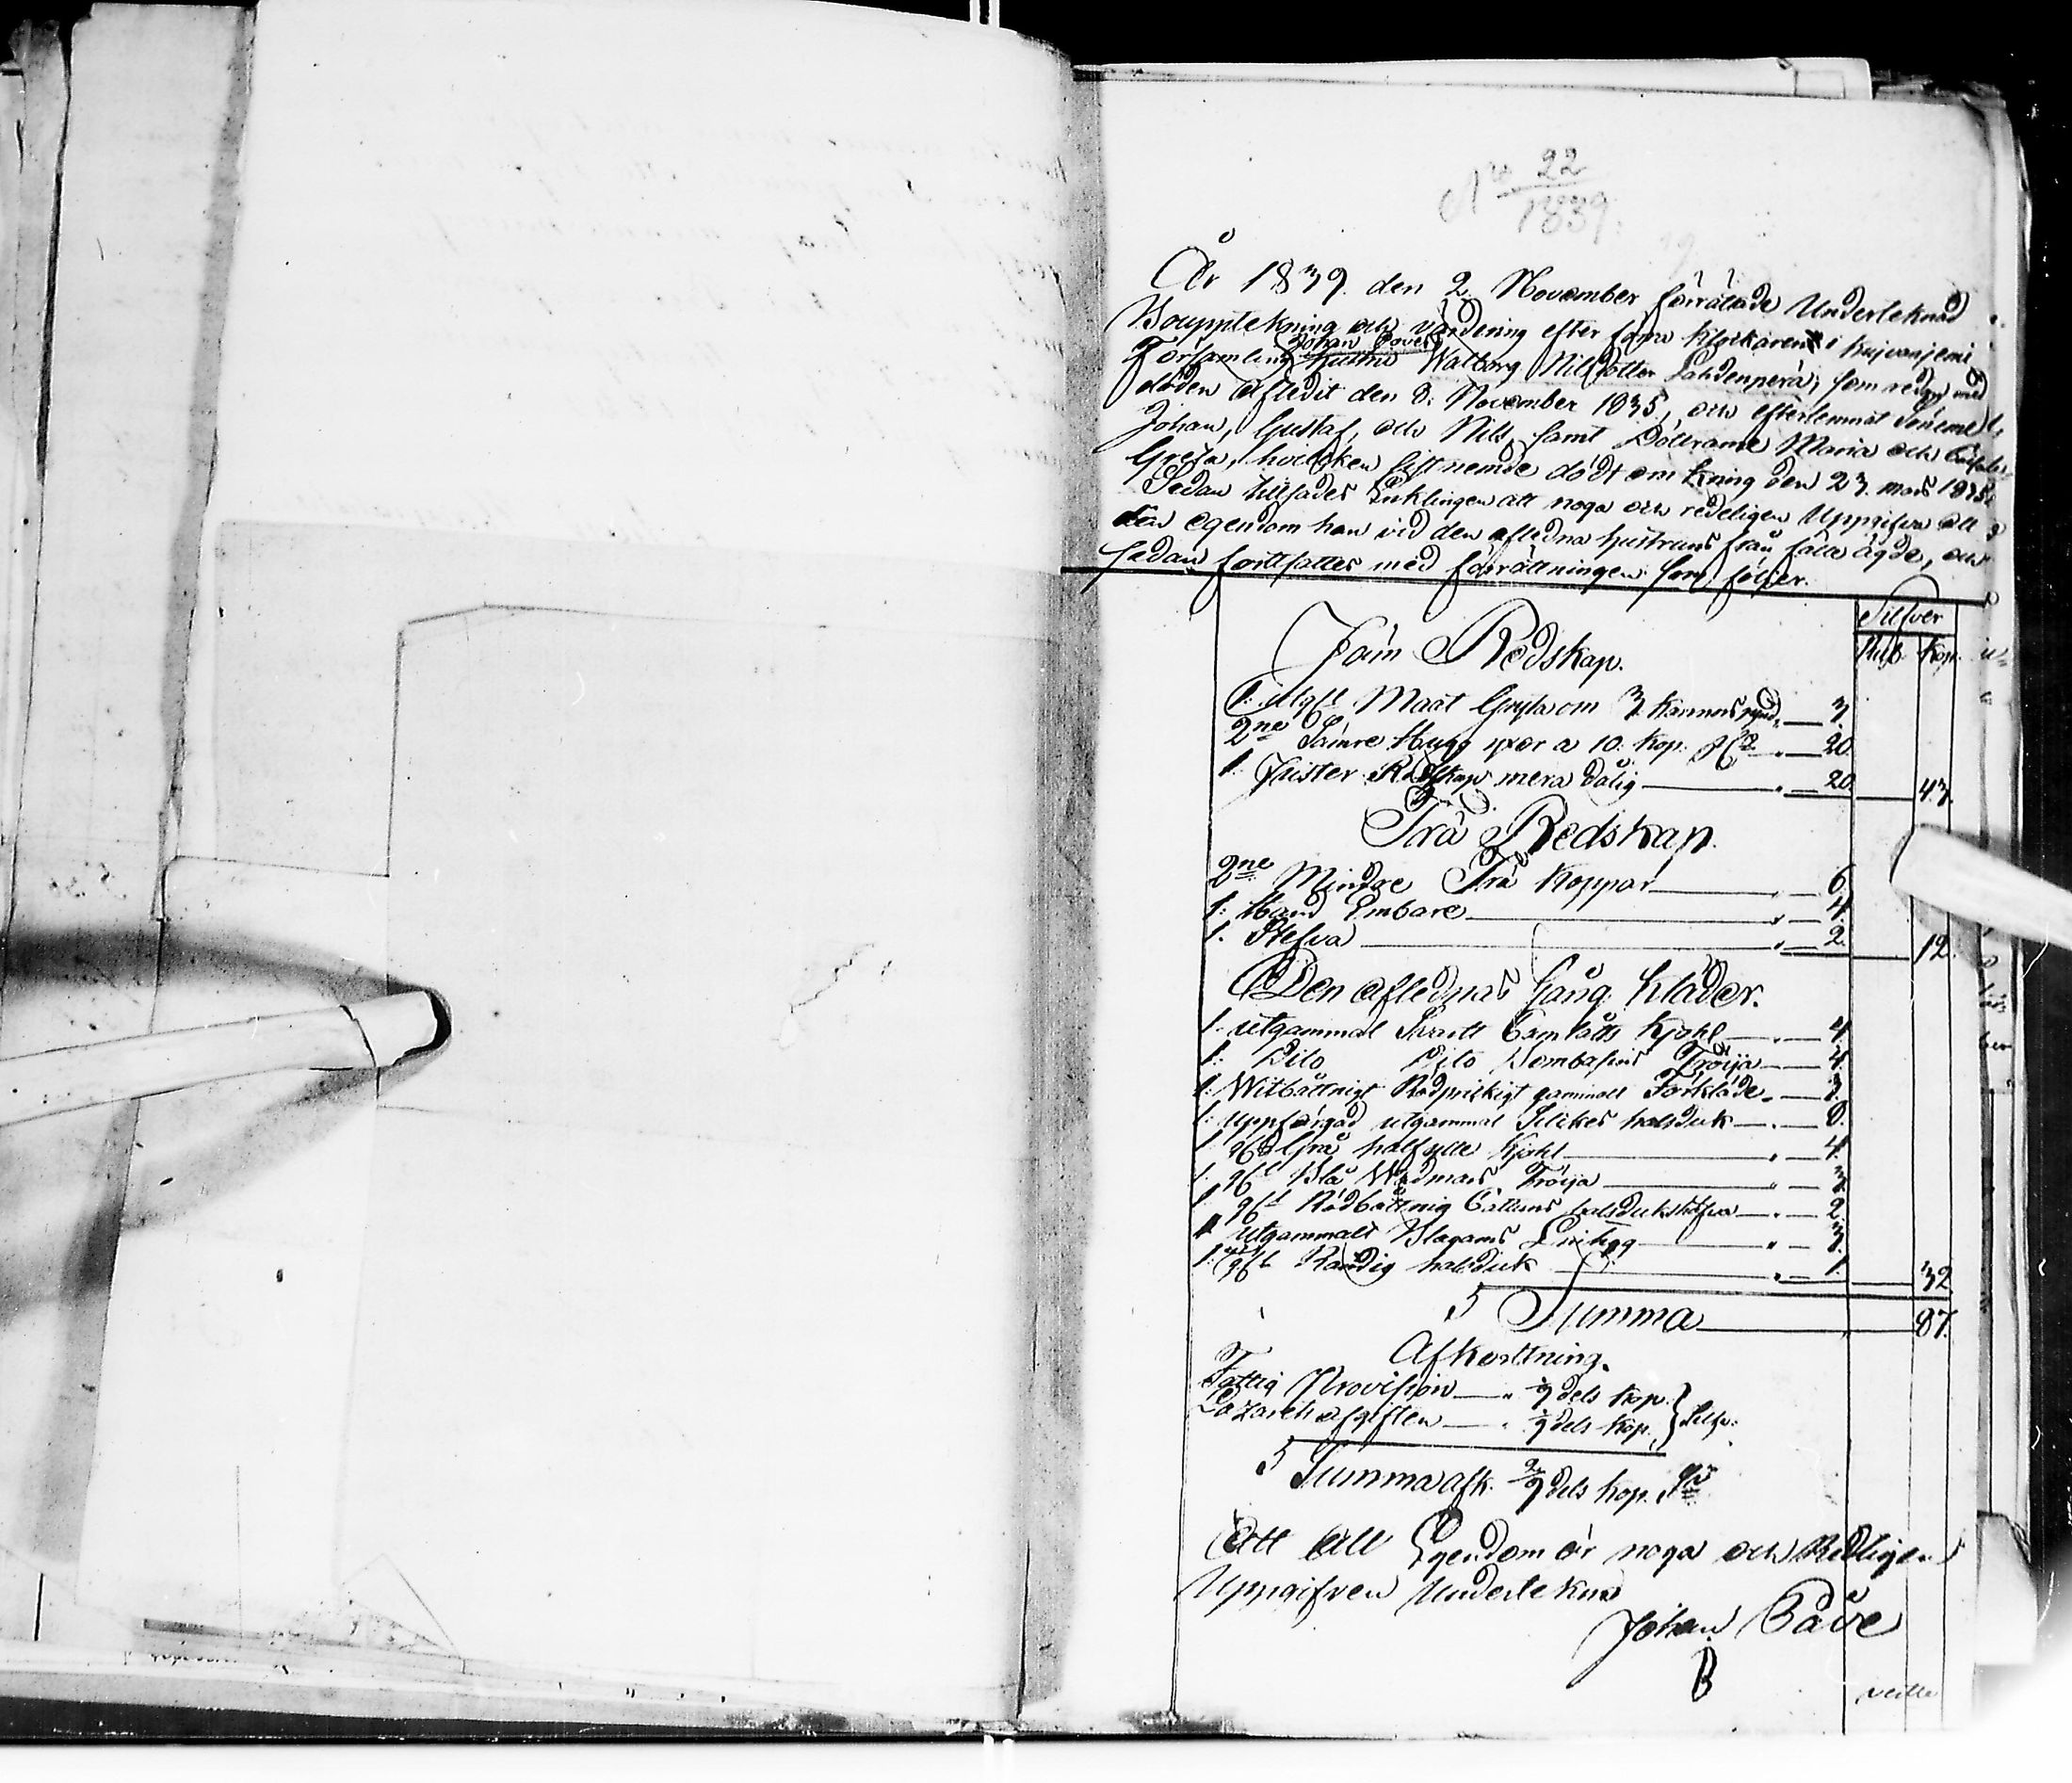 No 22
1839.
År 1839. den 2. November förrätade Underteknad
Boupptekning och värdering efter förra Klockaren i Kuivanjemi
Församling Johan Påves Hustru Walborg Nilsdotter Lahdenperä, som redan med
döden afledit den 8. November 1835, och efterlemnat Sönerne
Johan, Gustaf, och Nils, samt Döttrarne Maria och
Greta, hvilcken sist nemde dödt omkring den 23. mars 1835.
Sedan tillsades Enklingen att noga och redeligen Uppgifva all
den egendom han vid den afledna hustruns från fälle ägde, och
sedan fortfattes med förrättningen som följer.
Silfver
Rub. Kop.
Järn Redskap.
1. utgl Maat Gryta om 3 Kannors rymd „ 3.
2ne Sämre Hugg yxor a 10. Kop. St „ 20.
1. Fiister Redskap mera dålig „ 20. 43.
Trä Redskap.
2ne Mindre Trä Koppar „ 6.
1. Hand Embare „ 4.
1. Stefva „ 2. 12.
Den aflednas Gång Kläder.
1. utgammal Svartt Camlåtts Kjohl „ 4.
1. Dito Dito Bombasins Tröija „ 4.
1. Witbåttnigt Rödprickigt gammalt Förkläde „ 3.
1. uppfärgad utgammal Silikes halsduk „ 8.
1. gl Grå halfylle Kjohl „ 4.
1. gl Blå Wadmars Tröija „ 3.
1. gl Rödbåttnig Cattuns halsduks „ 2.
1. utgammalt Blagarns „ 3.
1. gl Randig halsduk „ 1. 32
S Summa 87.
Afkorttning.
Fattig Provision „ 1/9 dels Kop.
Lazaretts afgiften „ 1/9 dels Kop. } Silfr.
S Summa afk. 2/9 dels Kop. Sr
Att all Egendom är noga och Redligen
Uppgifven Underteknar
Johan Påve